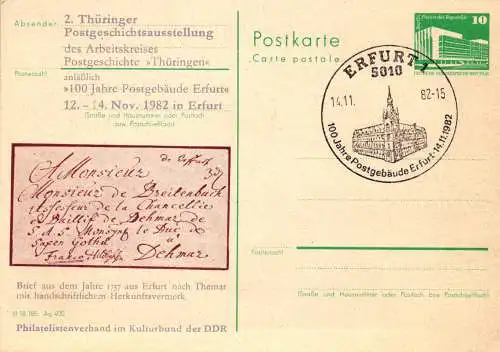 Absender:
2. Thüringer
Postgeschichtsausstellung
des Arbeitskreises
Postgeschichte »Thüringen«
anläßlich
»100 Jahre Postgebäude Erfurt«
12. – 14. Nov. 1982 in Erfurt
(Straße und Hausnummer oder Postfach
bzw. Postschließfach)
Postzahl
de Erfurt
A Monsieur
Monsieur de Breitenbauch
Assesseur de la Chancellie
de
S. A. S. Monsgr le Duc de
Saxen Gotha
à
Franco
Brief aus dem Jahre 1737 aus Erfurt nach Themar
mit handschriftlichem Herkunftsvermerk
Ag 400
Philatelistenverband im Kulturbund der DDR
Postkarte
Carte postale
10
ERFURT 1
5010
14.11. 82-15
100 Jahre Postgebäude Erfurt · 14.11.1982
Postleitzahl
(Straße und Hausnummer oder Postfach bzw. Postschließfach)